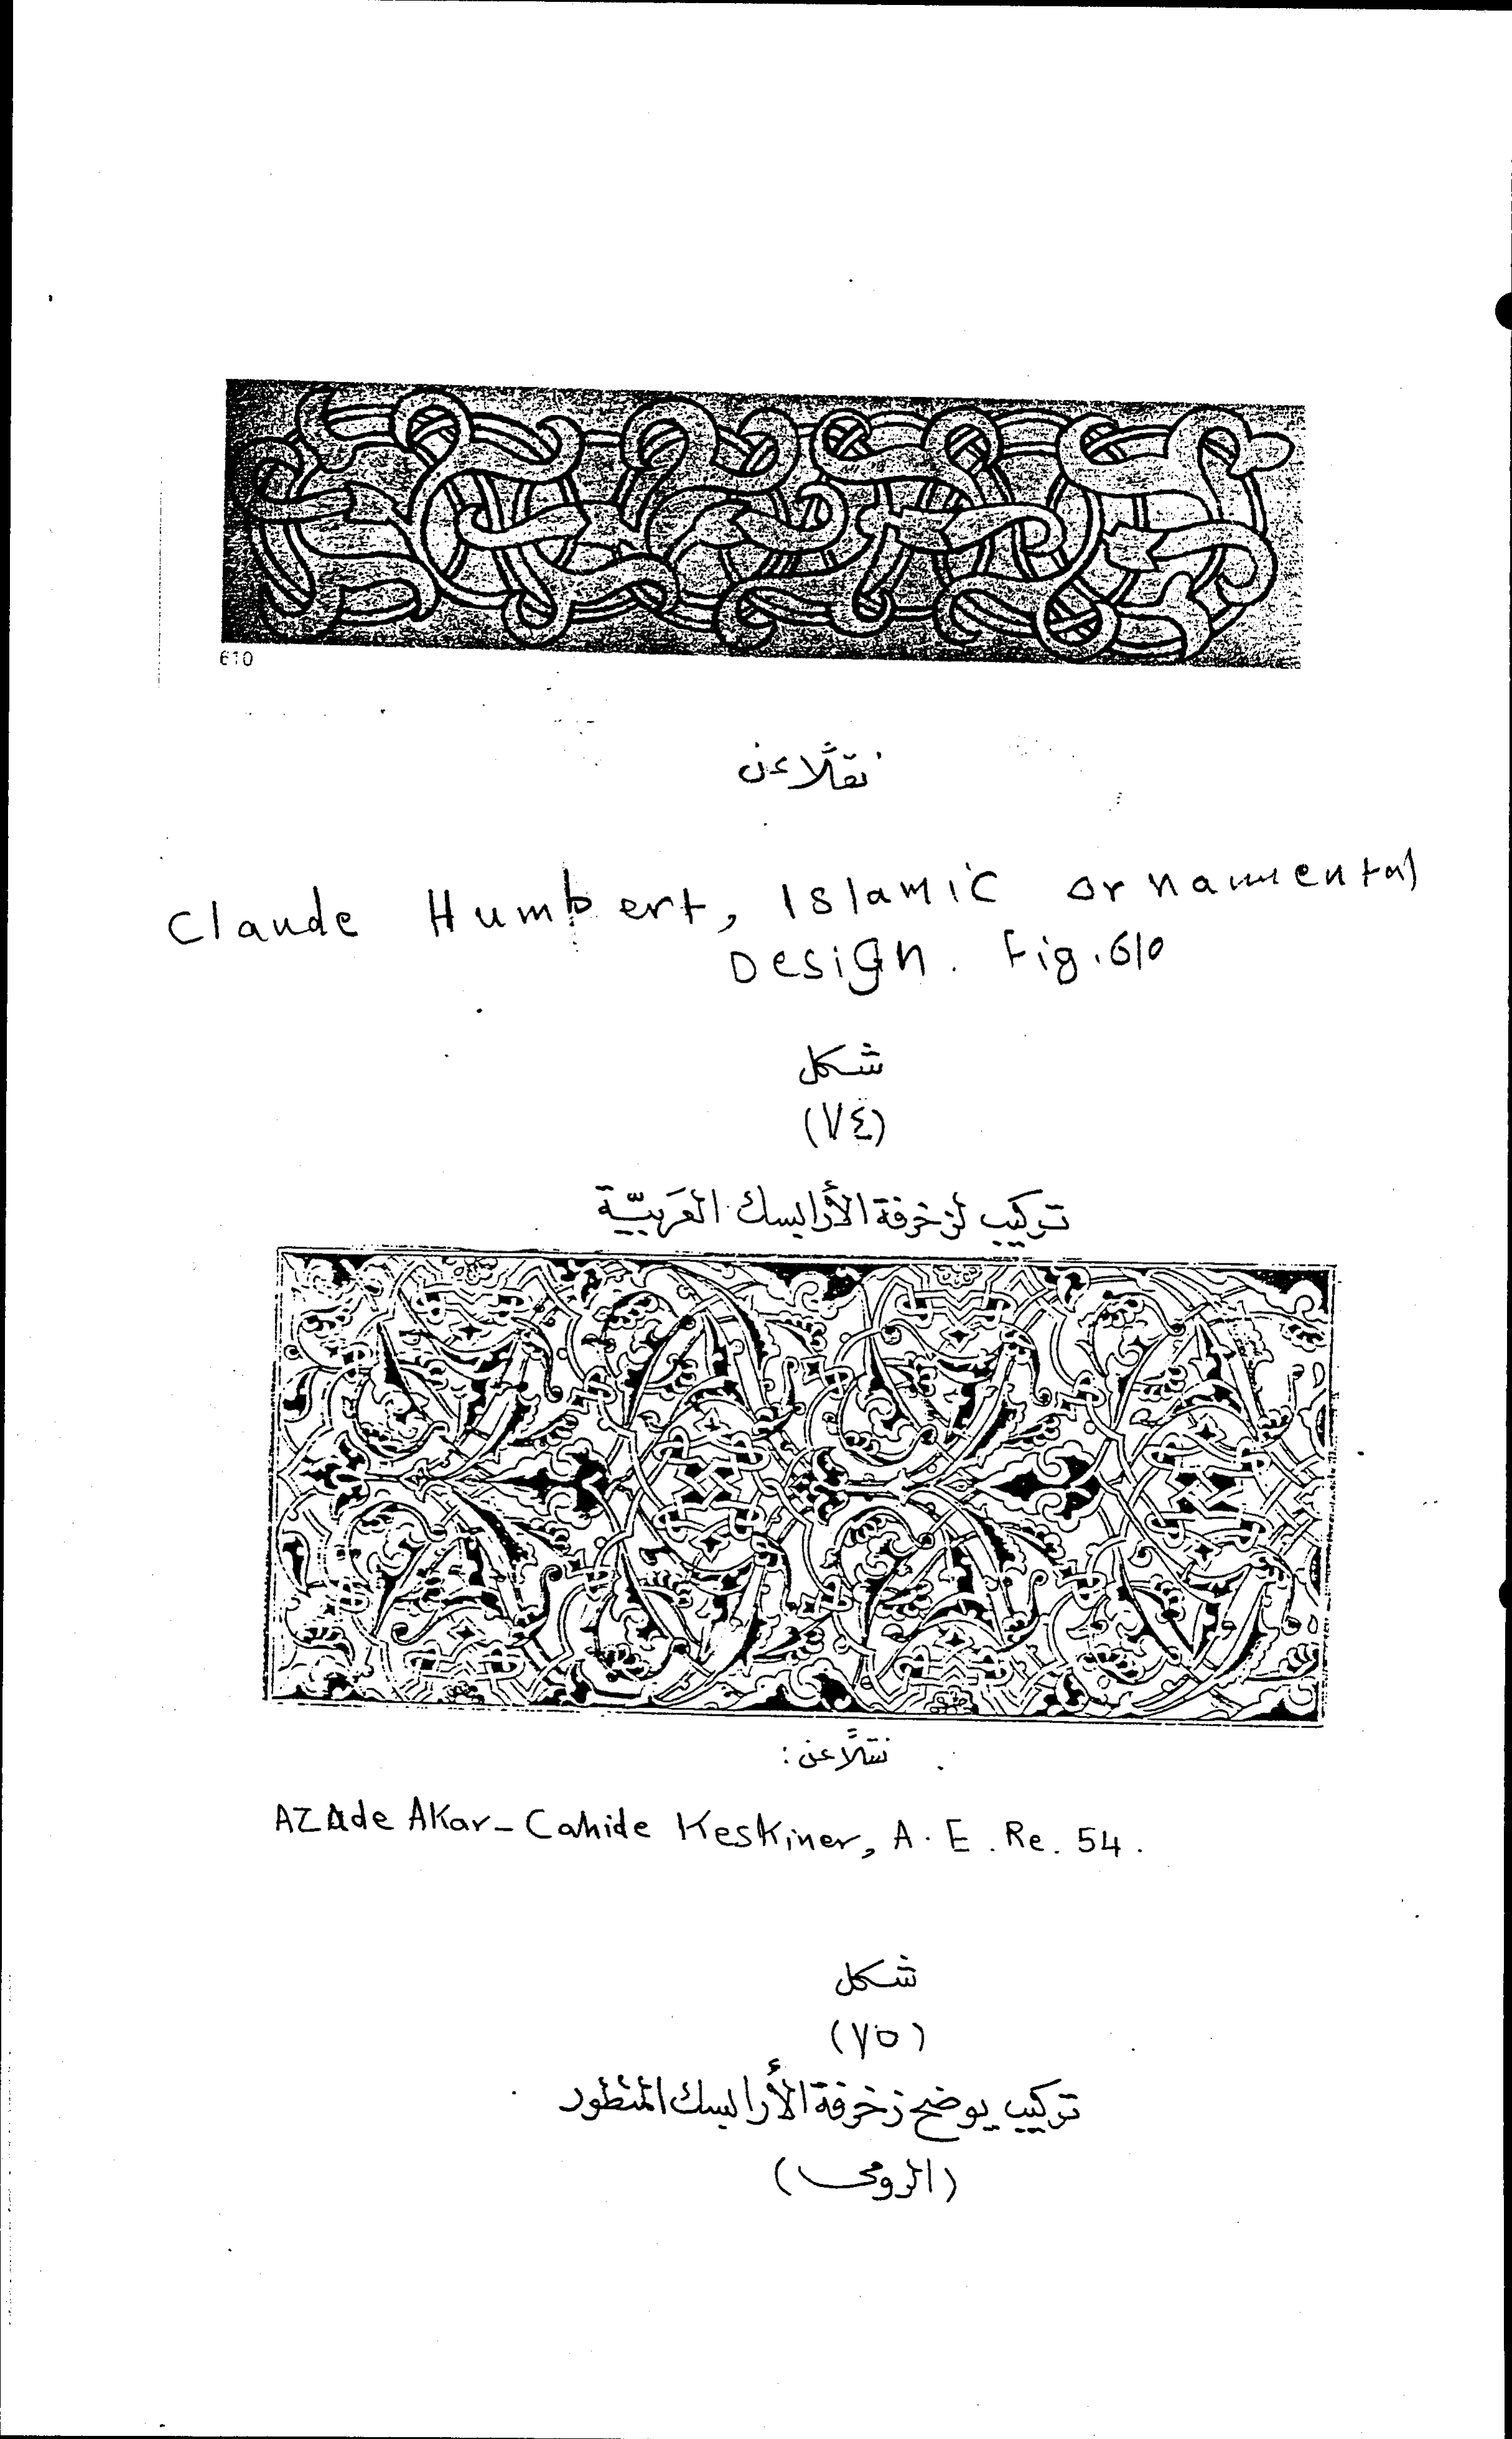 610
نقلًا عن
Claude Humbert, Islamic ornamental
Design. Fig. 610
شكل
(٧٤)
تركيب لزخرفة الأرابسك العَربيّة
نقلًا عن :
AZAde AKar - Cahide Keskiner, A. E. Re. 54.
شكل
(٧٥)
تركيب يوضح زخرفة الأرابسك المتطور
(الرومى)